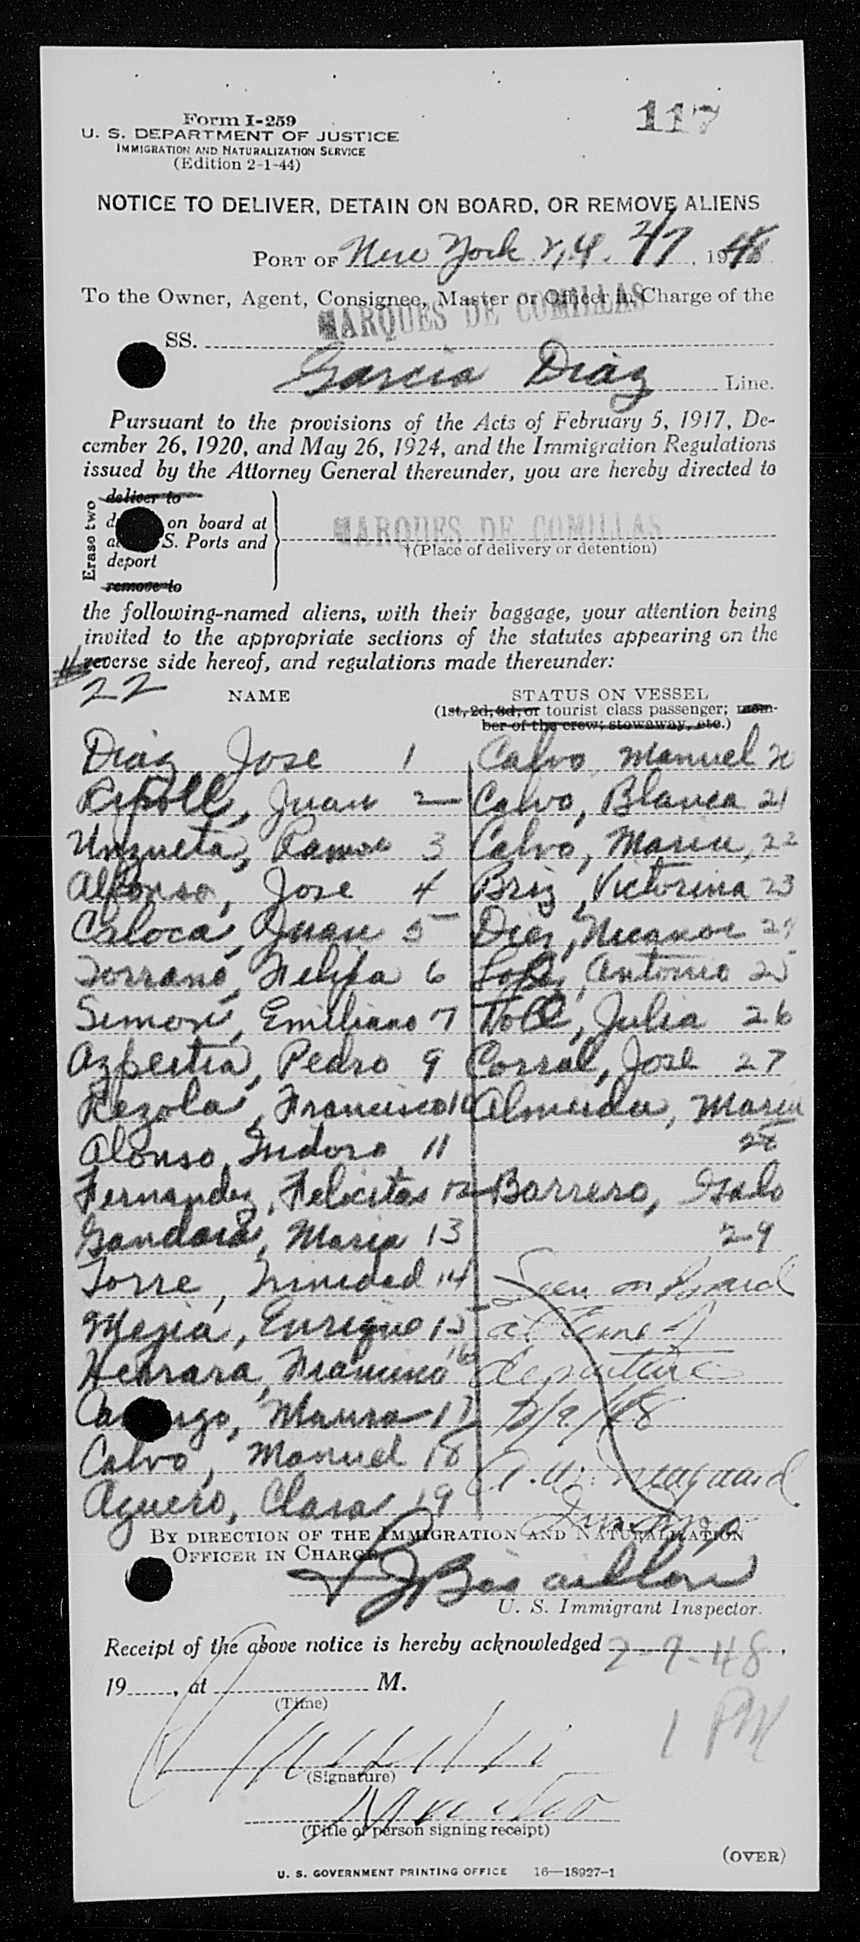 117
Form I-259
U. S. DEPARTMENT OF JUSTICE
IMMIGRATION AND NATURALIZATION SERVICE
(Edition 2-1-44)
NOTICE TO DELIVER, DETAIN ON BOARD, OR REMOVE ALIENS
PORT OF New York N.Y. 2/7, 1948
To the Owner, Agent, Consignee, Master or Officer in Charge of the
SS. MARQUES DE COMILLAS
Garcia Diaz Line.
Pursuant to the provisions of the Acts of February 5, 1917, De-
cember 26, 1920, and May 26, 1924, and the Immigration Regulations
issued by the Attorney General thereunder, you are hereby directed to
Erase two
deliver to
on board at
S. Ports and
deport
remove to
MARQUES DE COMILLAS
†(Place of delivery or detention)
the following-named aliens, with their baggage, your attention being
invited to the appropriate sections of the statutes appearing on the
reverse side hereof, and regulations made thereunder:
22
NAME
STATUS ON VESSEL
(1st, 2d, 3d, or tourist class passenger; mem-
ber of the crew; stowaway, etc.)
Diaz Jose 1
Ripoll, Juan 2
Unzueta, Ramon 3
Alfonso, Jose 4
Caloca, Juan 5
Torrano, Felipa 6
Simon, Emiliano 7
Azpeitia, Pedro 9
Rezola, Francisco 10
Alonso, Isidoro 11
Fernandez, Felicitas 12
Gandara, Maria 13
Torre, Trinidad 14
Mejia, Enrique 15
Herrara, Francisco 16
Maura 17
Calvo, Manuel 18
Aguero, Clara 19
Calvo, Manuel 20
Calvo, Blanca 21
Calvo, Maria, 22
Briz, Victorina 23
Diez, Nicanor 24
Antonio 25
Julia 26
Corral, Jose 27
Almeida, Maria
28
Barrero, Galo
29
Seen on board
at time of
departure
2/9/48
BY DIRECTION OF THE IMMIGRATION AND NATURALIZATION
OFFICER IN CHARGE
U. S. Immigrant Inspector.
Receipt of the above notice is hereby acknowledged 2-9-48,
19, at M.
(Time)
1 PM
(Signature)
(Title of person signing receipt)
(OVER)
U. S. GOVERNMENT PRINTING OFFICE 16—18927-1